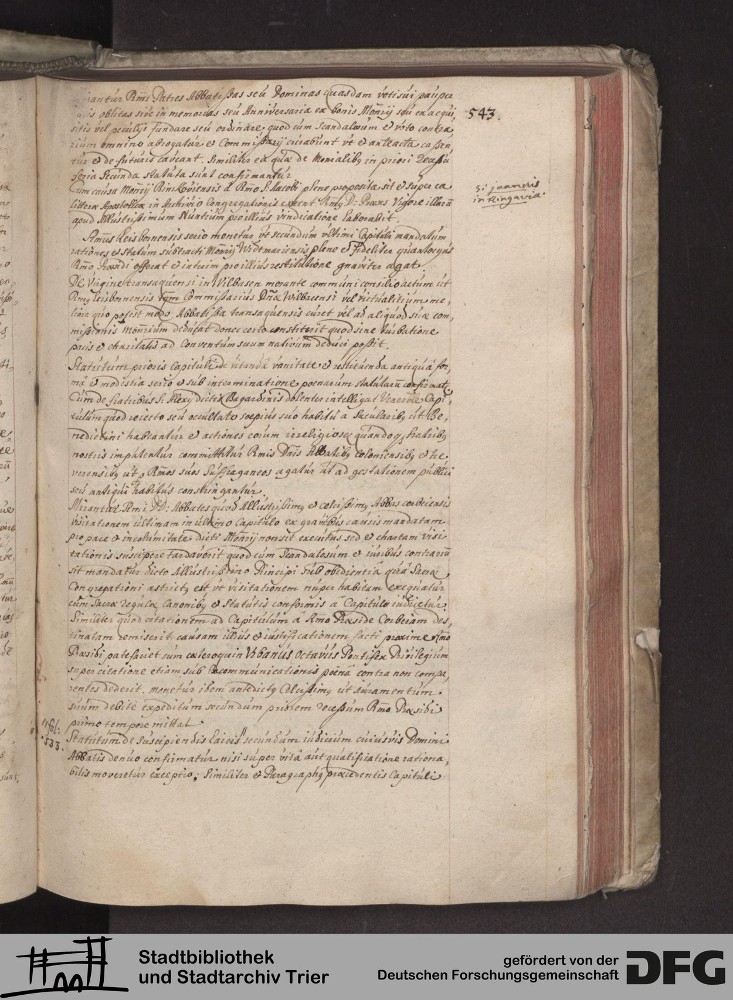 Patres Abbatissas seu Dominas quasdam voti sui pauper
oblitas sive in memorias seu Anniversaria ex bonis Monrij seu ex acqui
sitis vel peculijs fundare seu ordinare, quod cum scandalosum et voto contra
rium omnino abrogatur et Commissarij curabunt ut et anteacta cassen
tur et de futuris caveant. Similiter ea quae de Monialibus in priori recessu
feria secunda statuta sunt confirmantur
543.
Cum causa Monrij a Rmo S. Jacobi plene proposita sit et super ea
litterae Apostolicae in Archivio Congregationis extent Rmus D. Praeses Vigore illarum
apud Illustrissimum Nuntium pro illius vindicatione laborabit.
S. joannis
in Ringavia.
Rmus Leisbonnensis serio monetur ut secundum ultimi Capituli mandatum
rationes et statum subtracti Monrij plene et fideliter quantocyus
Rmo offerat et interim pro illius restitutione gnaviter agat.
De Virgine transaquensi in Wilbasen morante communi consilio actum ut
Rmus Leisbonnensis Commissarius Dnae vel virtualitium me
liori quo potest modo Abbatissa transaquensis curet vel ad aliquod suae com
missionis Monrium deducat donec certo constiterit quod sine turbatione
pacis et charitatis ad Conventum suum nativum deduci possit.
Statutum prioris Capituli de vitanda vanitate et restituenda antiqua for
ma et modestia serio et sub interminatione poenarum statutarum confirmat
Cum de fratribus S. Alexy dictis Begardinis dolenter intelligat Venerabile Capi
tulum quod reiecto seu occultato saepius suo habitu a secularibus ut Be
nedictini habeantur et actiones eorum irreligiosae quandoque fratribus
nostris imputentur committitur Rmis Dnis Abbatibus Coloniensibus et
ut Rmos suos Suffraganeos agatur ut ad gestationem publici
sui antiqui habitus constringantur.
Mirantur Rmi DD. Abbates quod Illustrissimus et celsissimus Abbas corbeiensis
visitationem ultimam in ultimo Capitulo ex gravibus causis mandatam
pro pace et incolumitate dicti Monrij non sit executus sed et chartam visi
tationis suscipere tardaverit quod cum scandalosum et iuribus contrarium
sit mandatur dicto Illustrissimo Principi sub obedientia qua Sacrae
Congregationi astrictus est ut visitationem nuper habitam exequatur
cum Sacrae regulae Canonibus et Statutis conformis a Capitulo iudicetur
Similiter quod citationem ad Capitulum a Rmo Praeside Corbeiam des
tinatam remiserit causam illius et iustificationem facti proxime Rmo
Praesidi patefaciet cum caeteroquin Urbanus Octavus Pontifex Privilegium
super citatione etiam sub excommunicationis poena contra non compa
rentes dederit. monetur idem antedictus Celsissimus ut Iuramentum
suum debite expeditum secundum priorem recessum Rmo Praesidi
primo tempore mittat
fol.
533.
Statutum de suscipiendis Laicis secundum iudicium cuiusvis Domini
Abbatis denuo confirmatur nisi super vita aut qualificatione rationa
bilis moveretur exceptio; Similiter et Paragraphus praecedentis Capituli
Stadtbibliothek
und Stadtarchiv Trier
gefördert von der
Deutschen Forschungsgemeinschaft
DFG